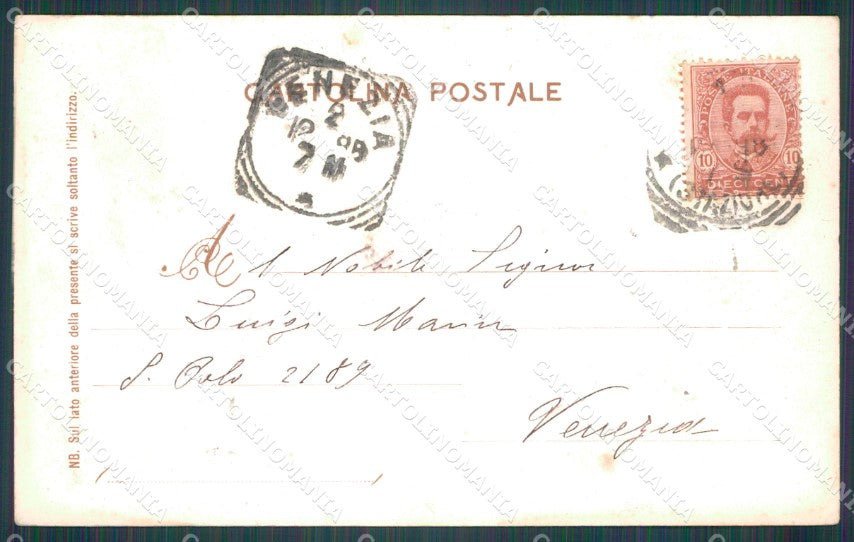 CARTOLINA POSTALE
VENEZIA
2
12 98
7 M
10 10
(STAZIONE)
Al Nobile Signor
Luigi Marin
S. Polo 2189
Venezia
NB. Sul lato anteriore della presente si scrive soltanto l'indirizzo.
CARTOLINOMANIA